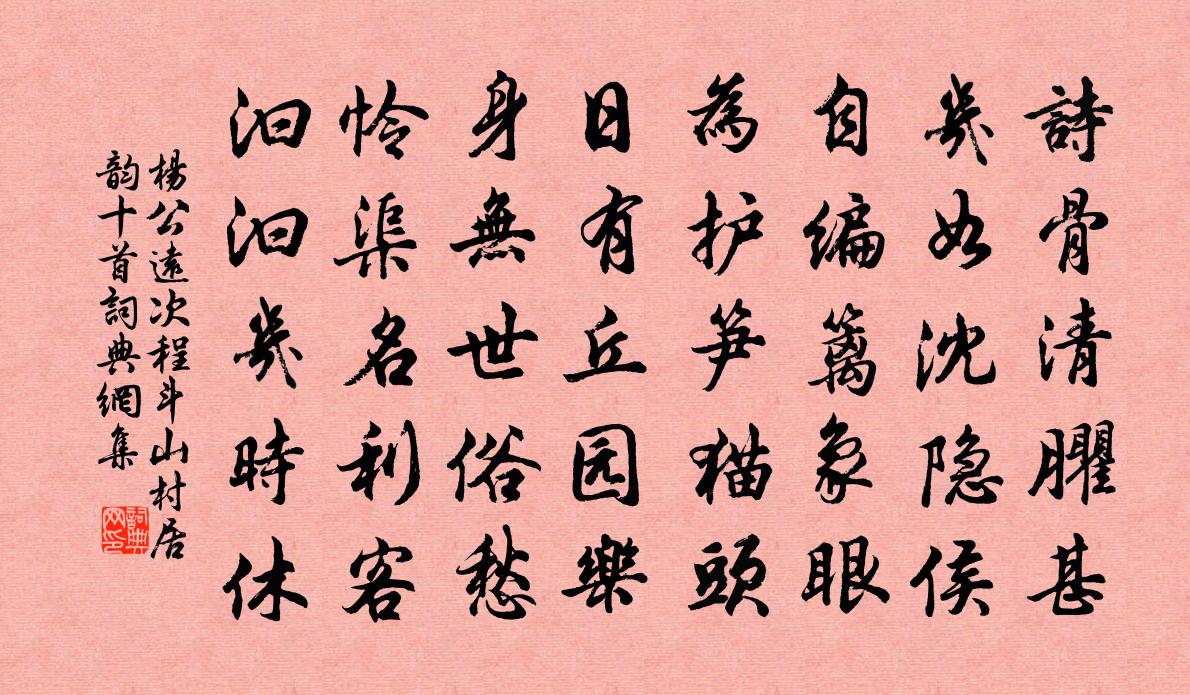 詩骨清臞甚
幾如沈隐侯
自编籬象眼
為护笋猫頭
日有丘园樂
身無世俗愁
怜渠名利客
汩汩幾時休
楊公遠次程斗山村居
韵十首詞典網集
詞典网印